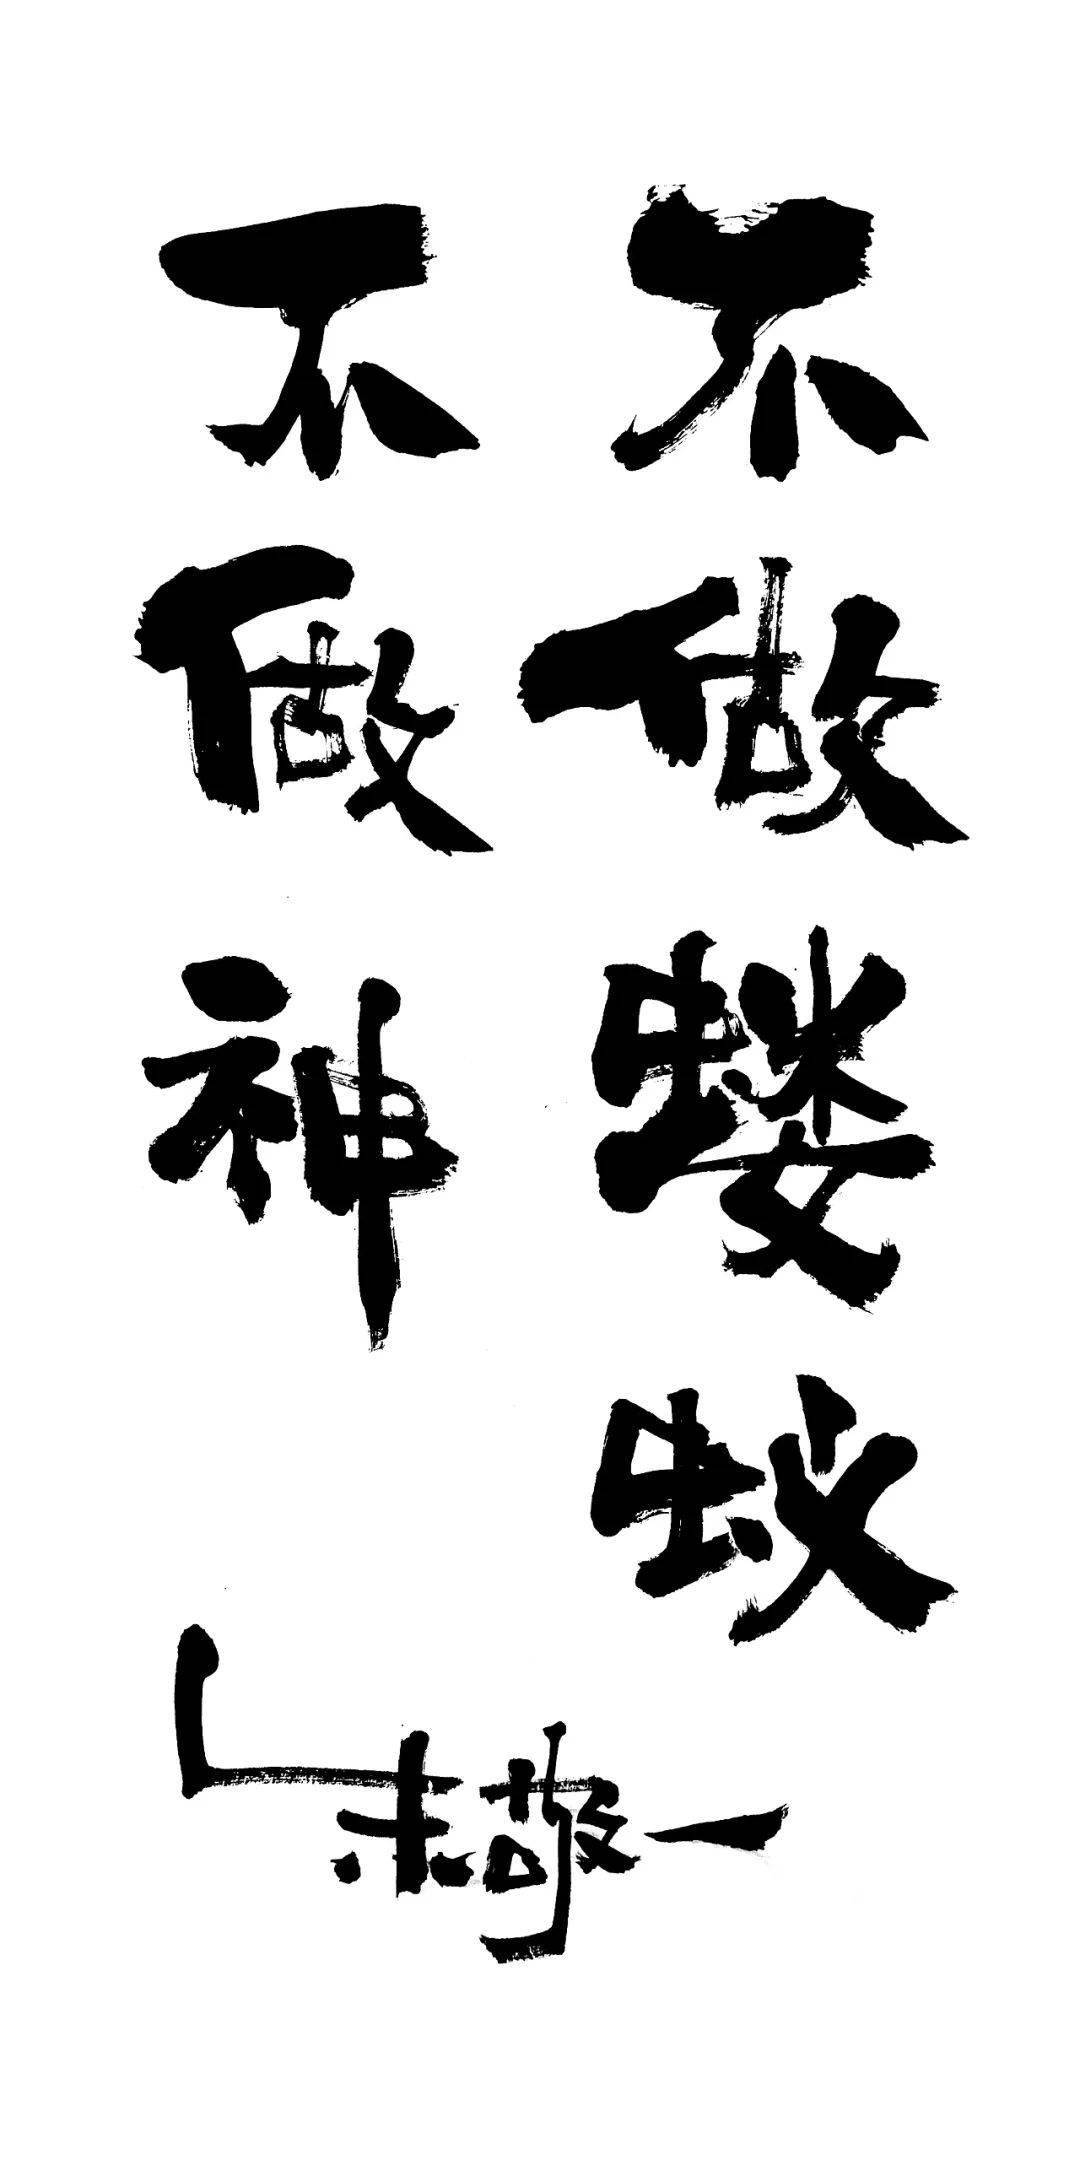 不做蝼蚁
不做神
朱敬一